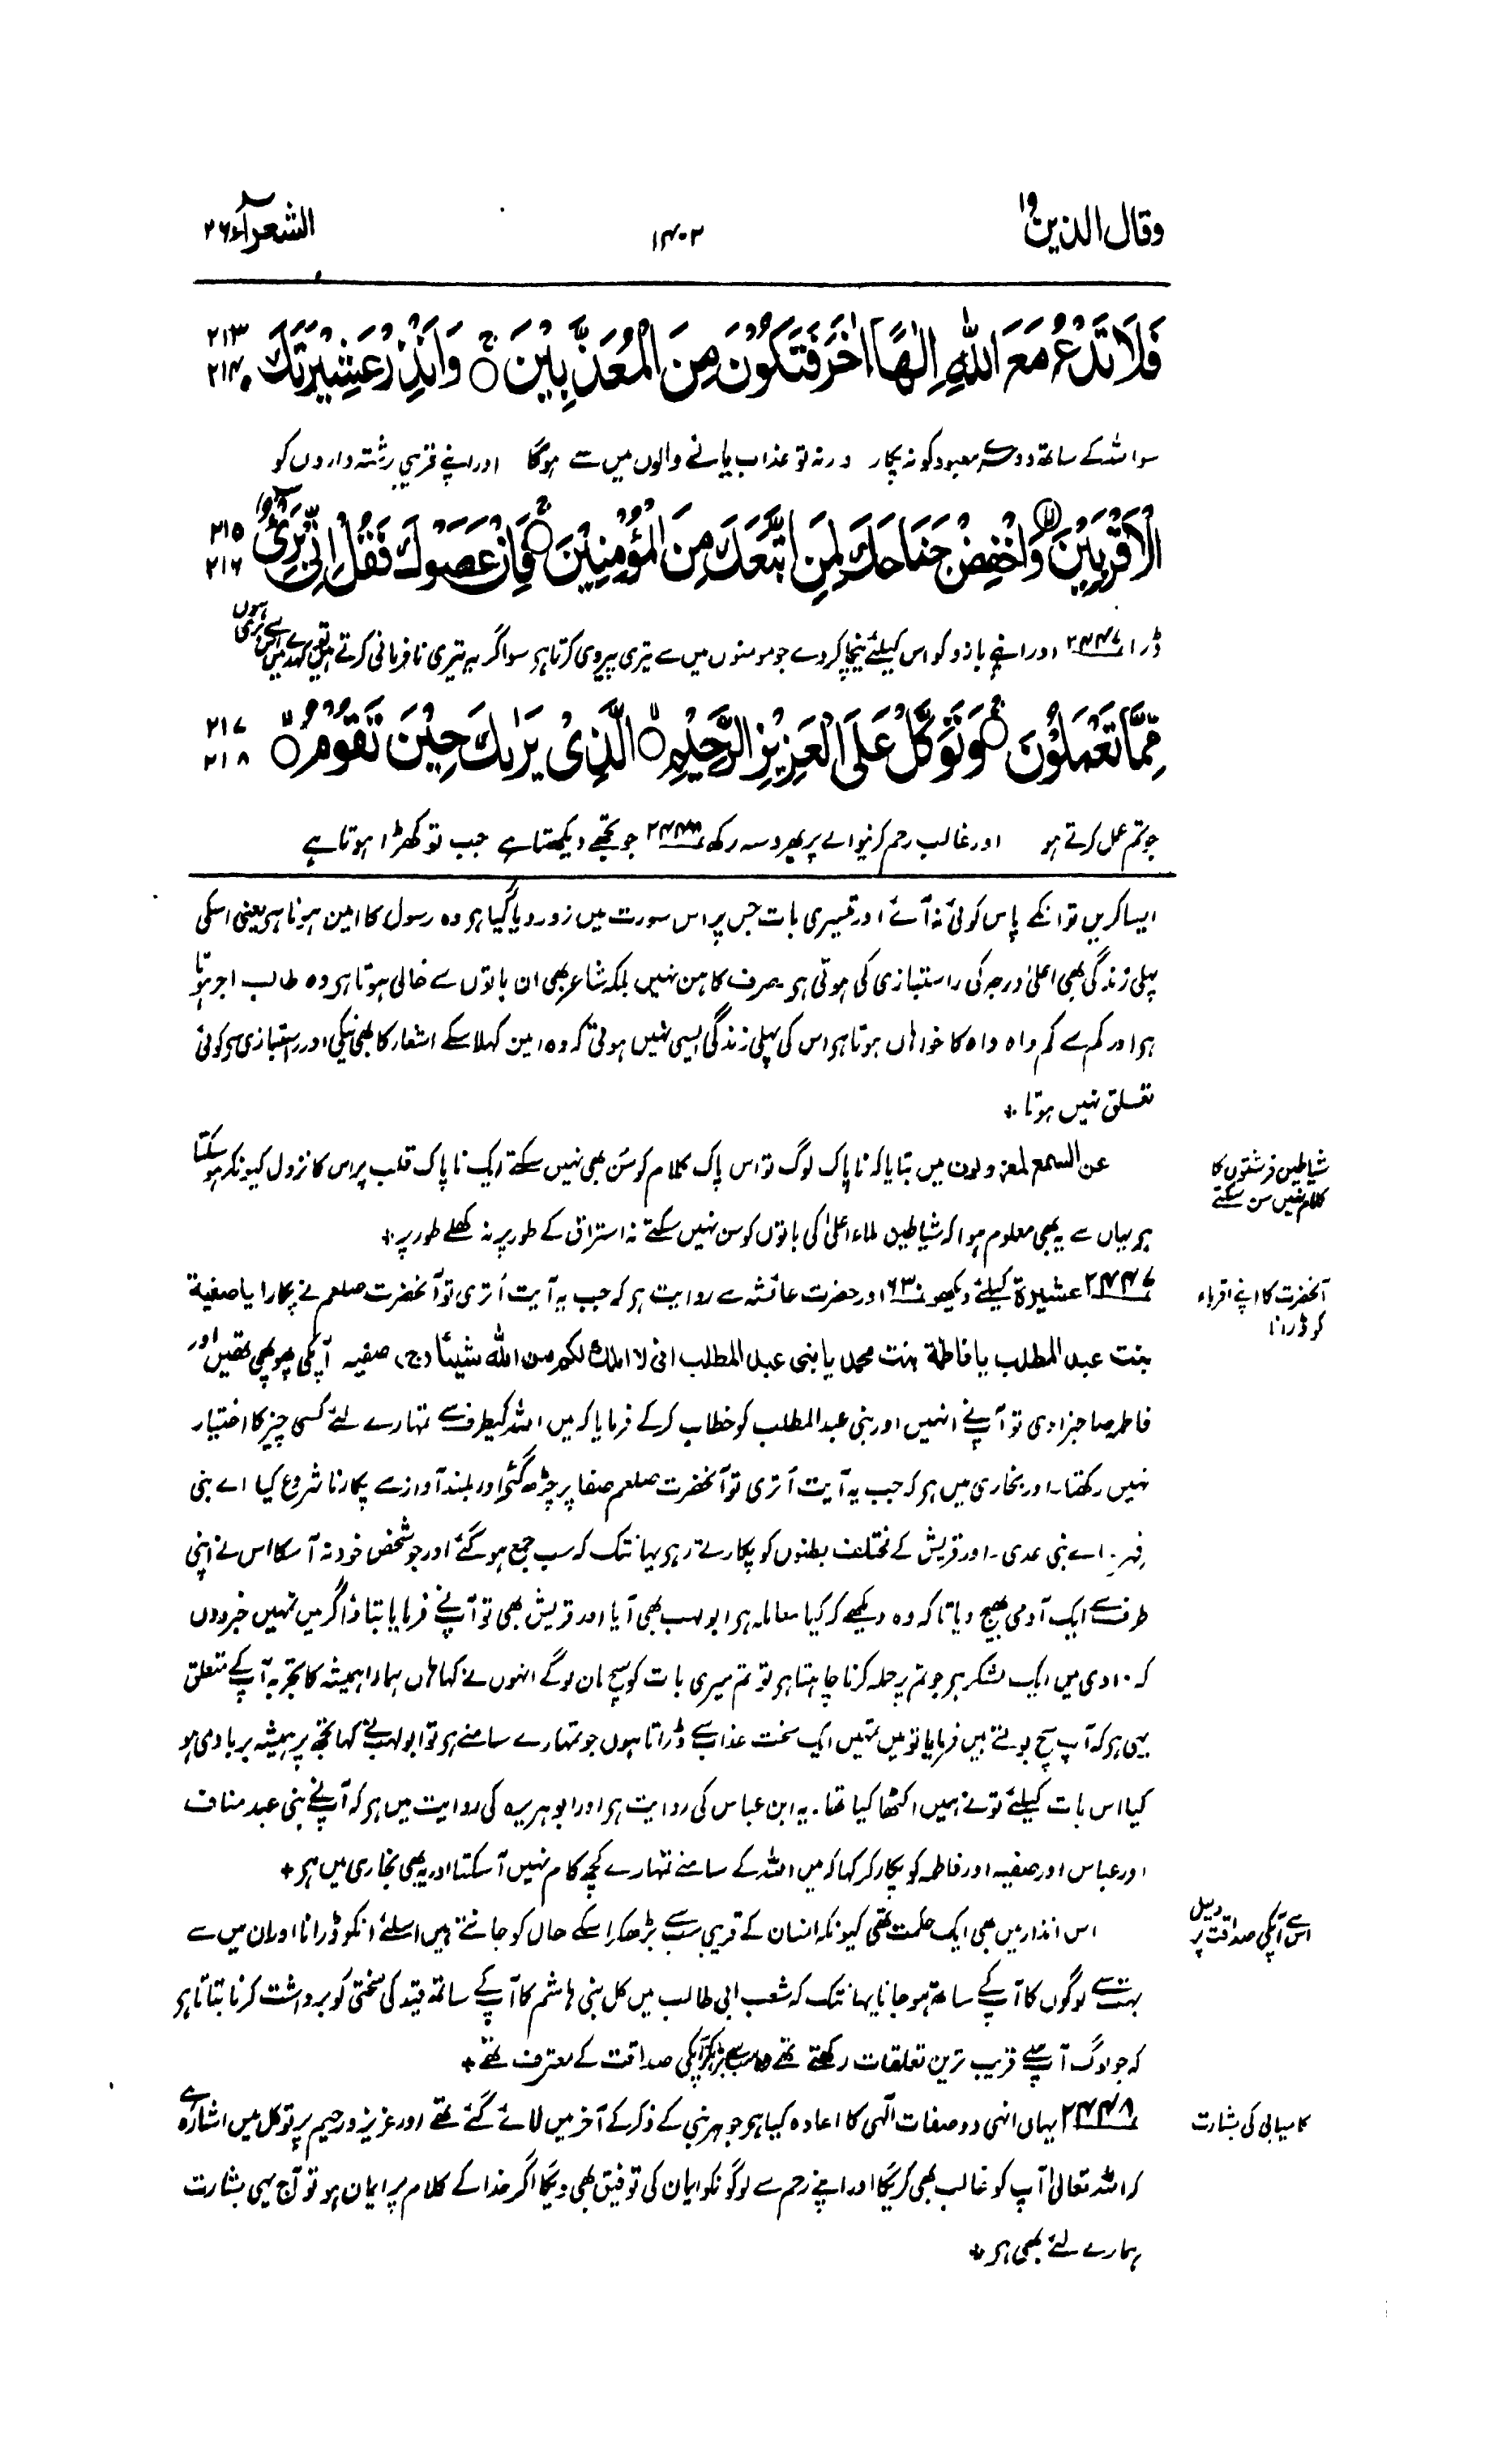 وقال الذین ۱۹
۱۴۰۲
الشعرآء ۲۶
فَلَا تَدْعُ مَعَ اللّٰهِ اِلٰهًا اٰخَرَ فَتَكُوْنَ مِنَ الْمُعَذَّبِيْنَ ۚ وَاَنْذِرْ عَشِيْرَتَكَ
۲۱۳
۲۱۴
سو اللہ کے ساتھ دوسرے معبود کو نہ پکار ورنہ تو عذاب پانے والوں میں سے ہوگا اور اپنے قریبی رشتہ داروں کو
الْاَقْرَبِيْنَ ۙ وَاخْفِضْ جَنَاحَكَ لِمَنِ اتَّبَعَكَ مِنَ الْمُؤْمِنِيْنَ ۚ فَاِنْ عَصَوْكَ فَقُلْ اِنِّيْ بَرِيْٓءٌ
۲۱۵
۲۱۶
ڈرا ۲۴۴۷ اور اپنے بازو کو اس کیلئے نیچا کر دے جو مومنوں میں سے تیری پیروی کرتا ہو سو اگر یہ تیری نافرمانی کرتے ہیں تو کہدے میں اس سے بری ہوں
مِّمَّا تَعْمَلُوْنَ ۚ وَتَوَكَّلْ عَلَى الْعَزِيْزِ الرَّحِيْمِ ۙ الَّذِيْ يَرٰىكَ حِيْنَ تَقُوْمُ ۙ
۲۱۷
۲۱۸
جو تم عمل کرتے ہو اور غالب رحم کرنیوالے پر بھروسہ رکھ ۲۴۴۸ جو تجھے دیکھتا ہے جب تو کھڑا ہوتا ہے
ایسا کریں تو انکے پاس کوئی نہ آئے اور تیسری بات جس پر اس سورت میں زور دیا گیا ہو وہ رسول کا امین ہونا ہی یعنی اسکی
پہلی زندگی بھی اعلیٰ درجہ کی راستبازی کی ہوتی ہو۔ صرف کاہن نہیں بلکہ شاعر بھی ان باتوں سے خالی ہوتا ہو وہ طالب اجر ہوتا
ہو اور کم سے کم واہ واہ کا خواہاں ہوتا ہو اس کی پہلی زندگی ایسی نہیں ہوتی کہ وہ امین کہلا سکے اشعار کا بھی نیکی اور راستبازی سی کوئی
تعلق نہیں ہوتا +
عن السمع لمعزولون میں بتایا کہ ناپاک لوگ تو اس پاک کلام کو سن بھی نہیں سکتے ایک ناپاک قلب پر اس کا نزول کیونکر ہو سکتا
شیاطین فرشتوں کا
کلام نہیں سن سکتے
ہو یہاں سے یہ بھی معلوم ہوا کہ شیاطین ملاء اعلیٰ کی باتوں کو سن نہیں سکتے نہ استراق کے طور پر نہ کھلے طور پر +
۲۴۴۷ عشیرۃ کیلئے دیکھو ۶۳۰ اور حضرت عائشہ سے روایت ہو کہ جب یہ آیت اُتری تو آنحضرت صلعم نے پکارا یا صفیۃ
آنحضرت کا اپنے اقرباء
کو ڈرانا
بنت عبد المطلب یا فاطمۃ بنت محمد یا بنی عبد المطلب انی لا املک لکم من اللہ شیئا (ج) صفیہ آپکی پھوپھی تھیں اور
فاطمہ صاحبزادی تو آپنے انہیں اور بنی عبد المطلب کو خطاب کر کے فرمایا کہ میں اللہ کیطرف سے تمہارے لئے کسی چیز کا اختیار
نہیں رکھتا۔ اور بخاری میں ہو کہ جب یہ آیت اُتری تو آنحضرت صلعم صفا پر چڑھ گئے اور بلند آواز سے پکارنا شروع کیا اے بنی
فہر۔ اے بنی عدی۔ اور قریش کے مختلف بطنوں کو پکارتے رہو یہانتک کہ سب جمع ہو گئے اور جو شخص خود نہ آسکا اس نے اپنی
طرف سے ایک آدمی بھیج دیا تاکہ وہ دیکھے کہ کیا معاملہ ہو ابولہب بھی آیا اور قریش بھی تو آپنے فرمایا بتاؤ اگر میں تمہیں خبر دوں
کہ وادی میں ایک لشکر ہو جو تم پر حملہ کرنا چاہتا ہو تو تم میری بات کو سچ مان لوگے انہوں نے کہا ہاں ہمارا ہمیشہ کا تجربہ آپ کے متعلق
یہی ہو کہ آپ سچ بولتے ہیں فرمایا تو میں تمہیں ایک سخت عذاب سے ڈراتا ہوں جو تمہارے سامنے ہو تو ابولہب نے کہا تجھ پر ہمیشہ بربادی ہو
کیا اس بات کیلئے تو نے ہمیں اکٹھا کیا تھا۔ یہ ابن عباس کی روایت ہو اور ابو ہریرہ کی روایت میں ہو کہ آپنے بنی عبد مناف
اور عباس اور صفیہ اور فاطمہ کو پکار کر کہا کہ میں اللہ کے سامنے تمہارے کچھ کام نہیں آسکتا اور یہ بھی بخاری میں ہو +
اس انذار میں بھی ایک حکمت تھی کیونکہ انسان کے قریبی سب سے بڑھکر اسکے حال کو جانتے ہیں اسلئے انکو ڈرانا اور ان میں سے
اس سے آپکی صداقت پر دلیل
بہت سے لوگوں کا آپ کے ساتھ ہو جانا یہانتک کہ شعب ابی طالب میں کل بنی ہاشم کا آپ کے ساتھ قید کی سختی کو برداشت کرنا بتاتا ہو
کہ جو لوگ آپ سے قریب ترین تعلقات رکھتے تھے وہ سب سے بڑھکر آپکی صداقت کے معترف تھے +
۲۴۴۸ یہاں انہی دو صفات الٰہی کا اعادہ کیا ہو جو ہر نبی کے ذکر کے آخر میں لائے گئے تھے اور عزیز و رحیم پر توکل میں اشارہ ہے
کامیابی کی بشارت
کہ اللہ تعالیٰ آپ کو غالب بھی کریگا اور اپنے رحم سے لوگونکو ایمان کی توفیق بھی دیگا اگر خدا کے کلام پر ایمان ہو تو آج یہی بشارت
ہمارے لئے بھی ہو +